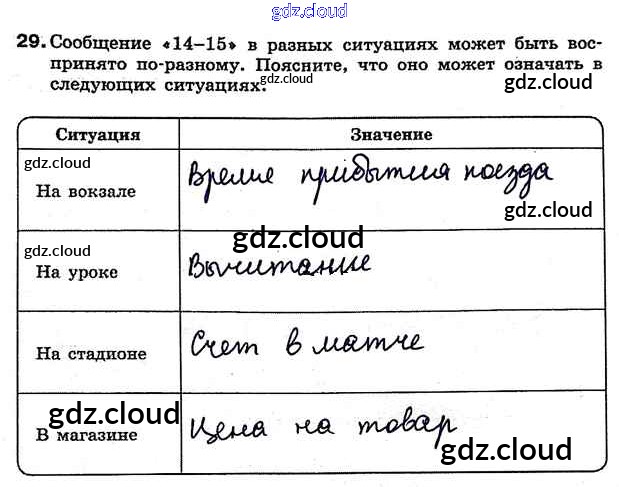 gdz.cloud
29. Сообщение «14–15» в разных ситуациях может быть вос-
принято по-разному. Поясните, что оно может означать в
gdz.cloud
gdz.cloud
следующих ситуациях:
Ситуация Значение
gdz.cloud
На вокзале Время прибытия поезда
gdz.cloud
gdz.cloud
gdz.cloud
На уроке Вычитание
На стадионе Счет в матче
gdz.cloud
В магазине Цена на товар
gdz.cloud